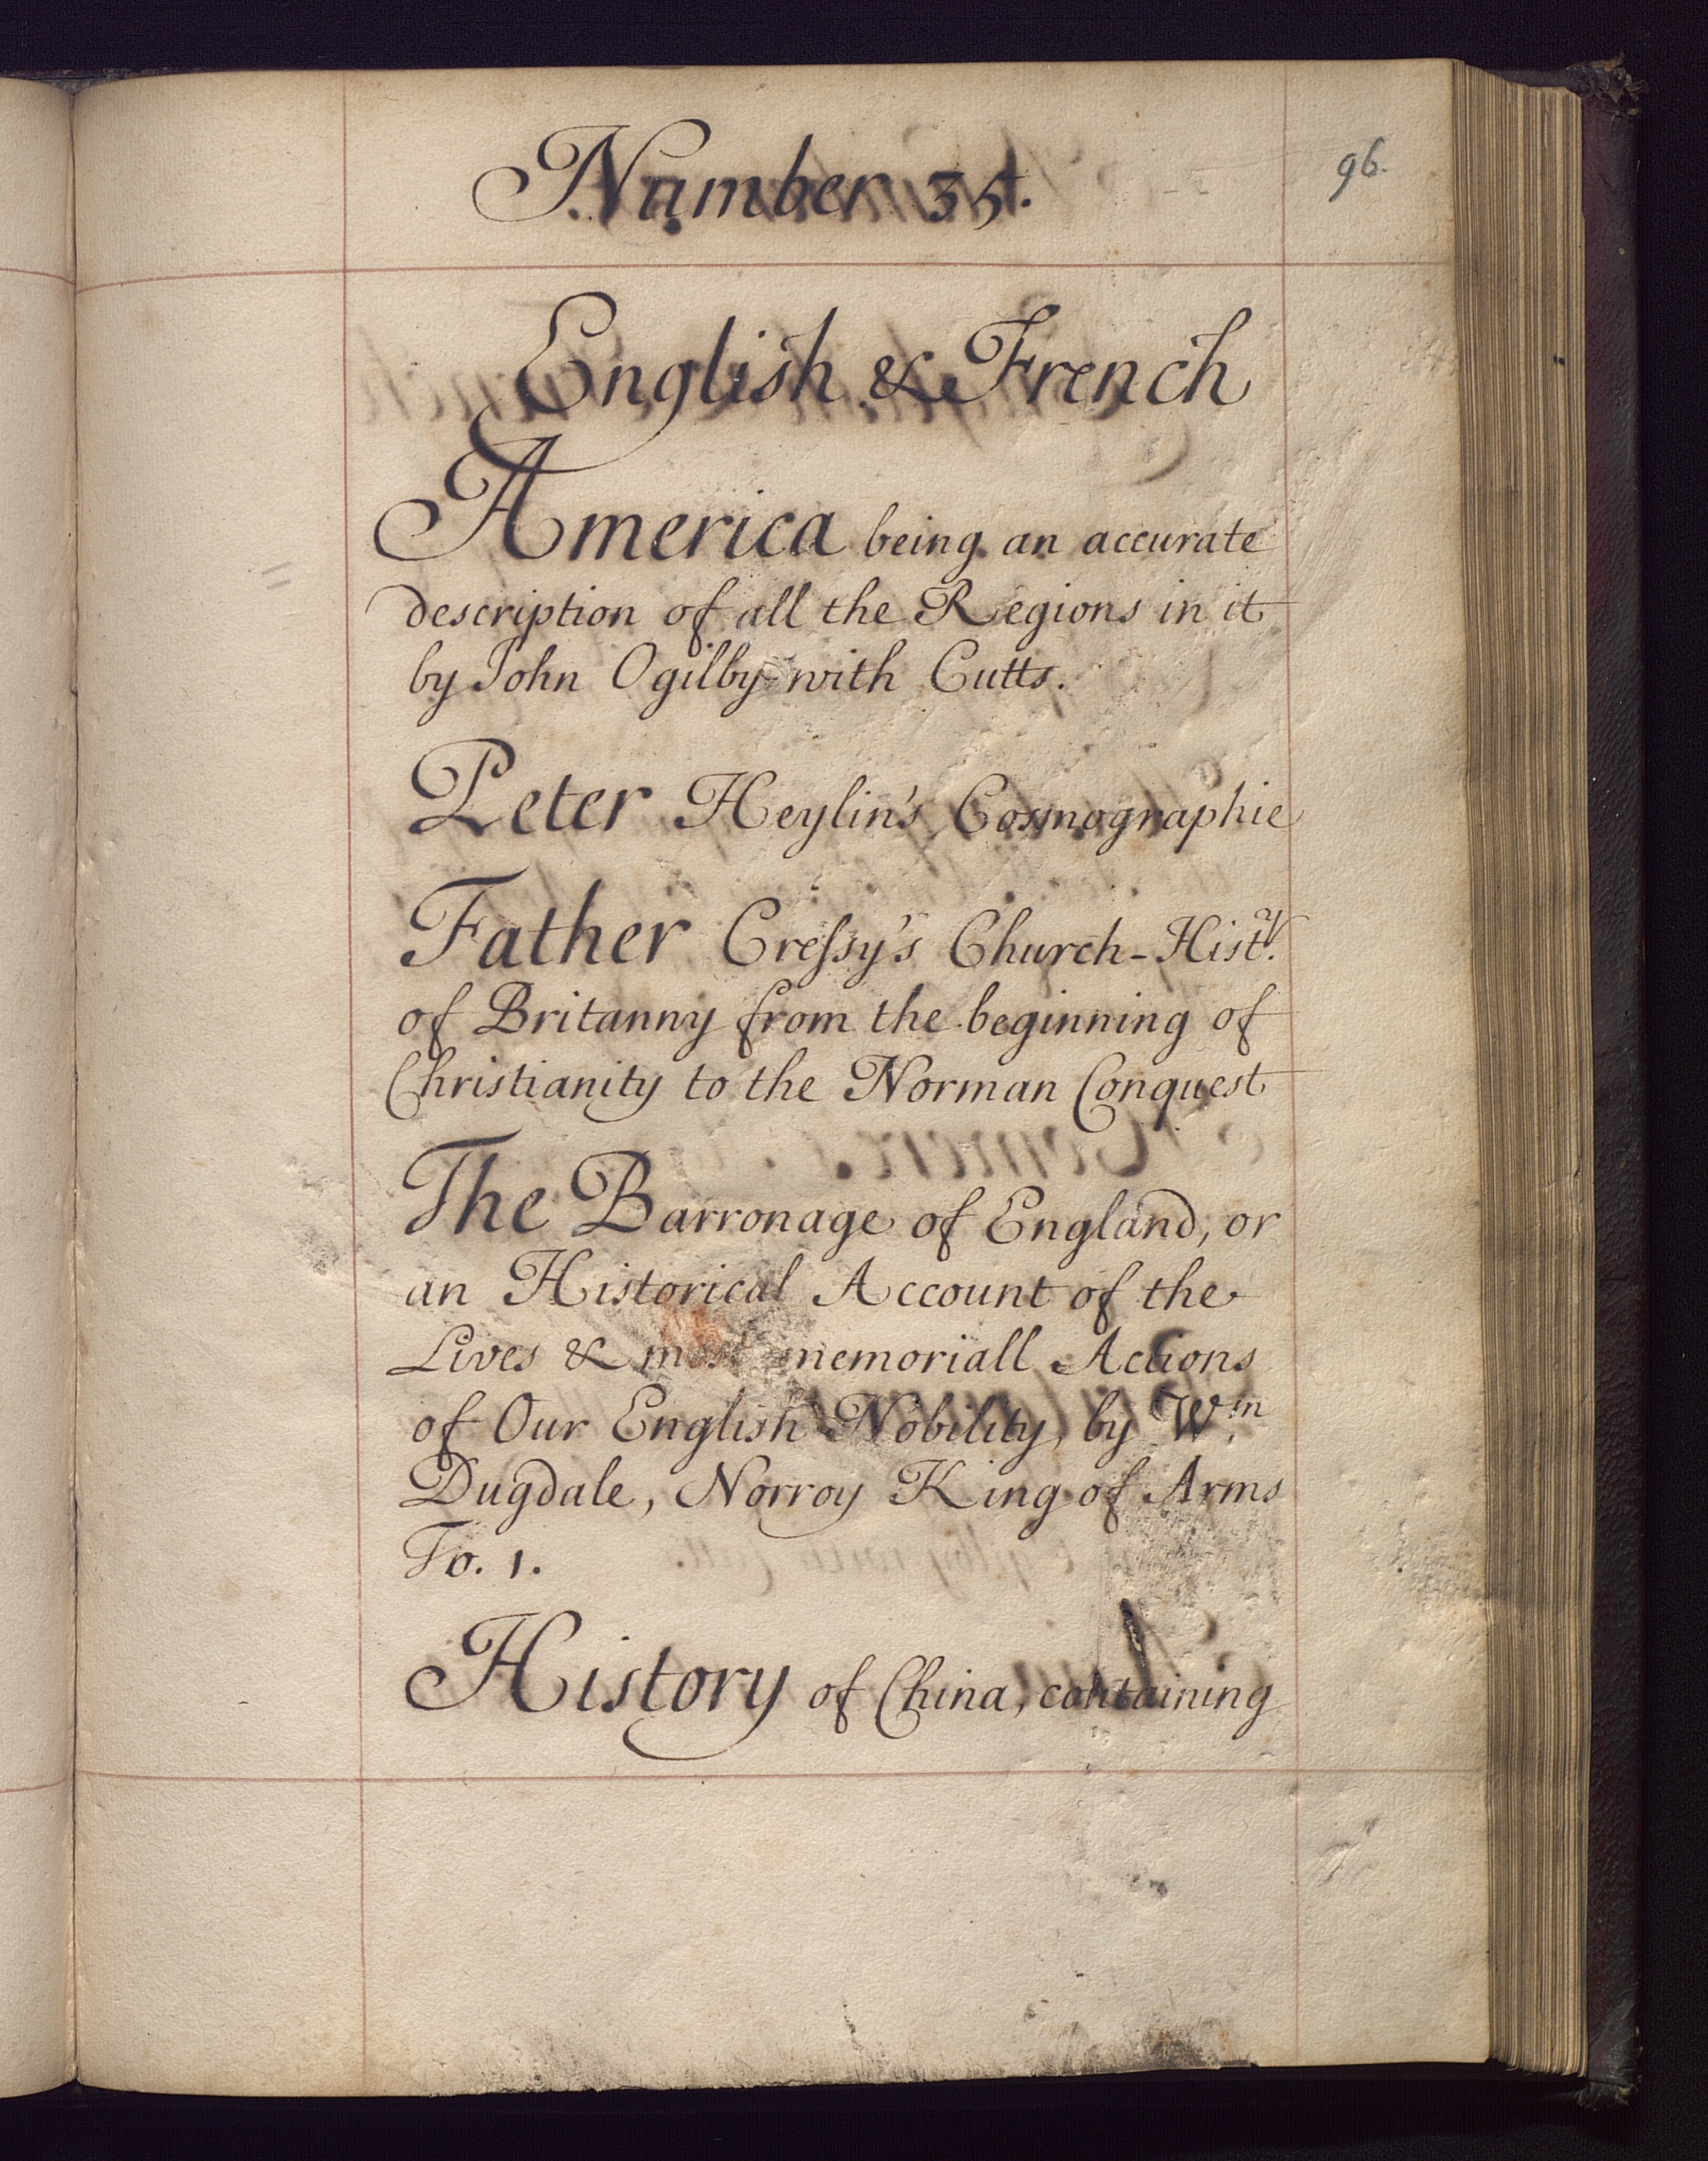 96.
Number 35.
English & French
America being an accurate
description of all the Regions in it
by John Ogilby with Cutts.
Peter Heylin's Cosmographie
Father Cressy's Church-Histy.
of Britanny from the beginning of
Christianity to the Norman Conquest
The Barronage of England, or
an Historical Account of the
Lives & most memoriall Actions
of Our English Nobility, by Wm
Dugdale, Norroy King of Arms
To. 1.
History of China, containing